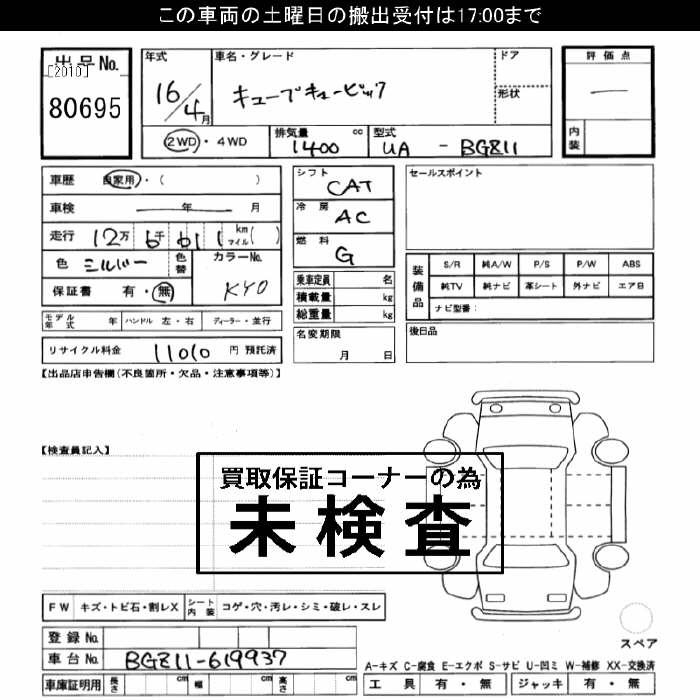 この車両の土曜日の搬出受付は17:00まで
出品No.
[2010]
80695
年式
16/4月
車名・グレード
キューブキュービック
ドア
形状
評価点
—
内装
2WD・4WD
排気量 cc
1400
型式
UA - BGZ11
車歴 自家用・( )
車検 年 月
走行 12万 6千 611 km マイル( )
色 シルバー 色替
カラーNo.
KY0
保証書 有・無
モデル年式 年 ハンドル 左・右 ディーラー・並行
リサイクル料金 11010 円 預託済
シフト
CAT
冷房
AC
燃料
G
乗車定員 名
積載量 kg
総重量 kg
名変期限
月 日
セールスポイント
装備品
S/R 純A/W P/S P/W ABS
純TV 純ナビ 革シート 外ナビ エアB
ナビ型番:
後日品
【出品店申告欄(不良箇所・欠品・注意事項等)】
【検査員記入】
買取保証コーナーの為
未検査
FW キズ・トビ石・割レX シート内装 コゲ・穴・汚レ・シミ・破レ・スレ
登録No.
車台No. BGZ11-619937
車庫証明用 長さ cm 幅 cm 高さ cm
スペア
A-キズ C-腐食 E-エクボ S-サビ U-凹ミ W-補修 XX-交換済
工具 有・無 ジャッキ 有・無